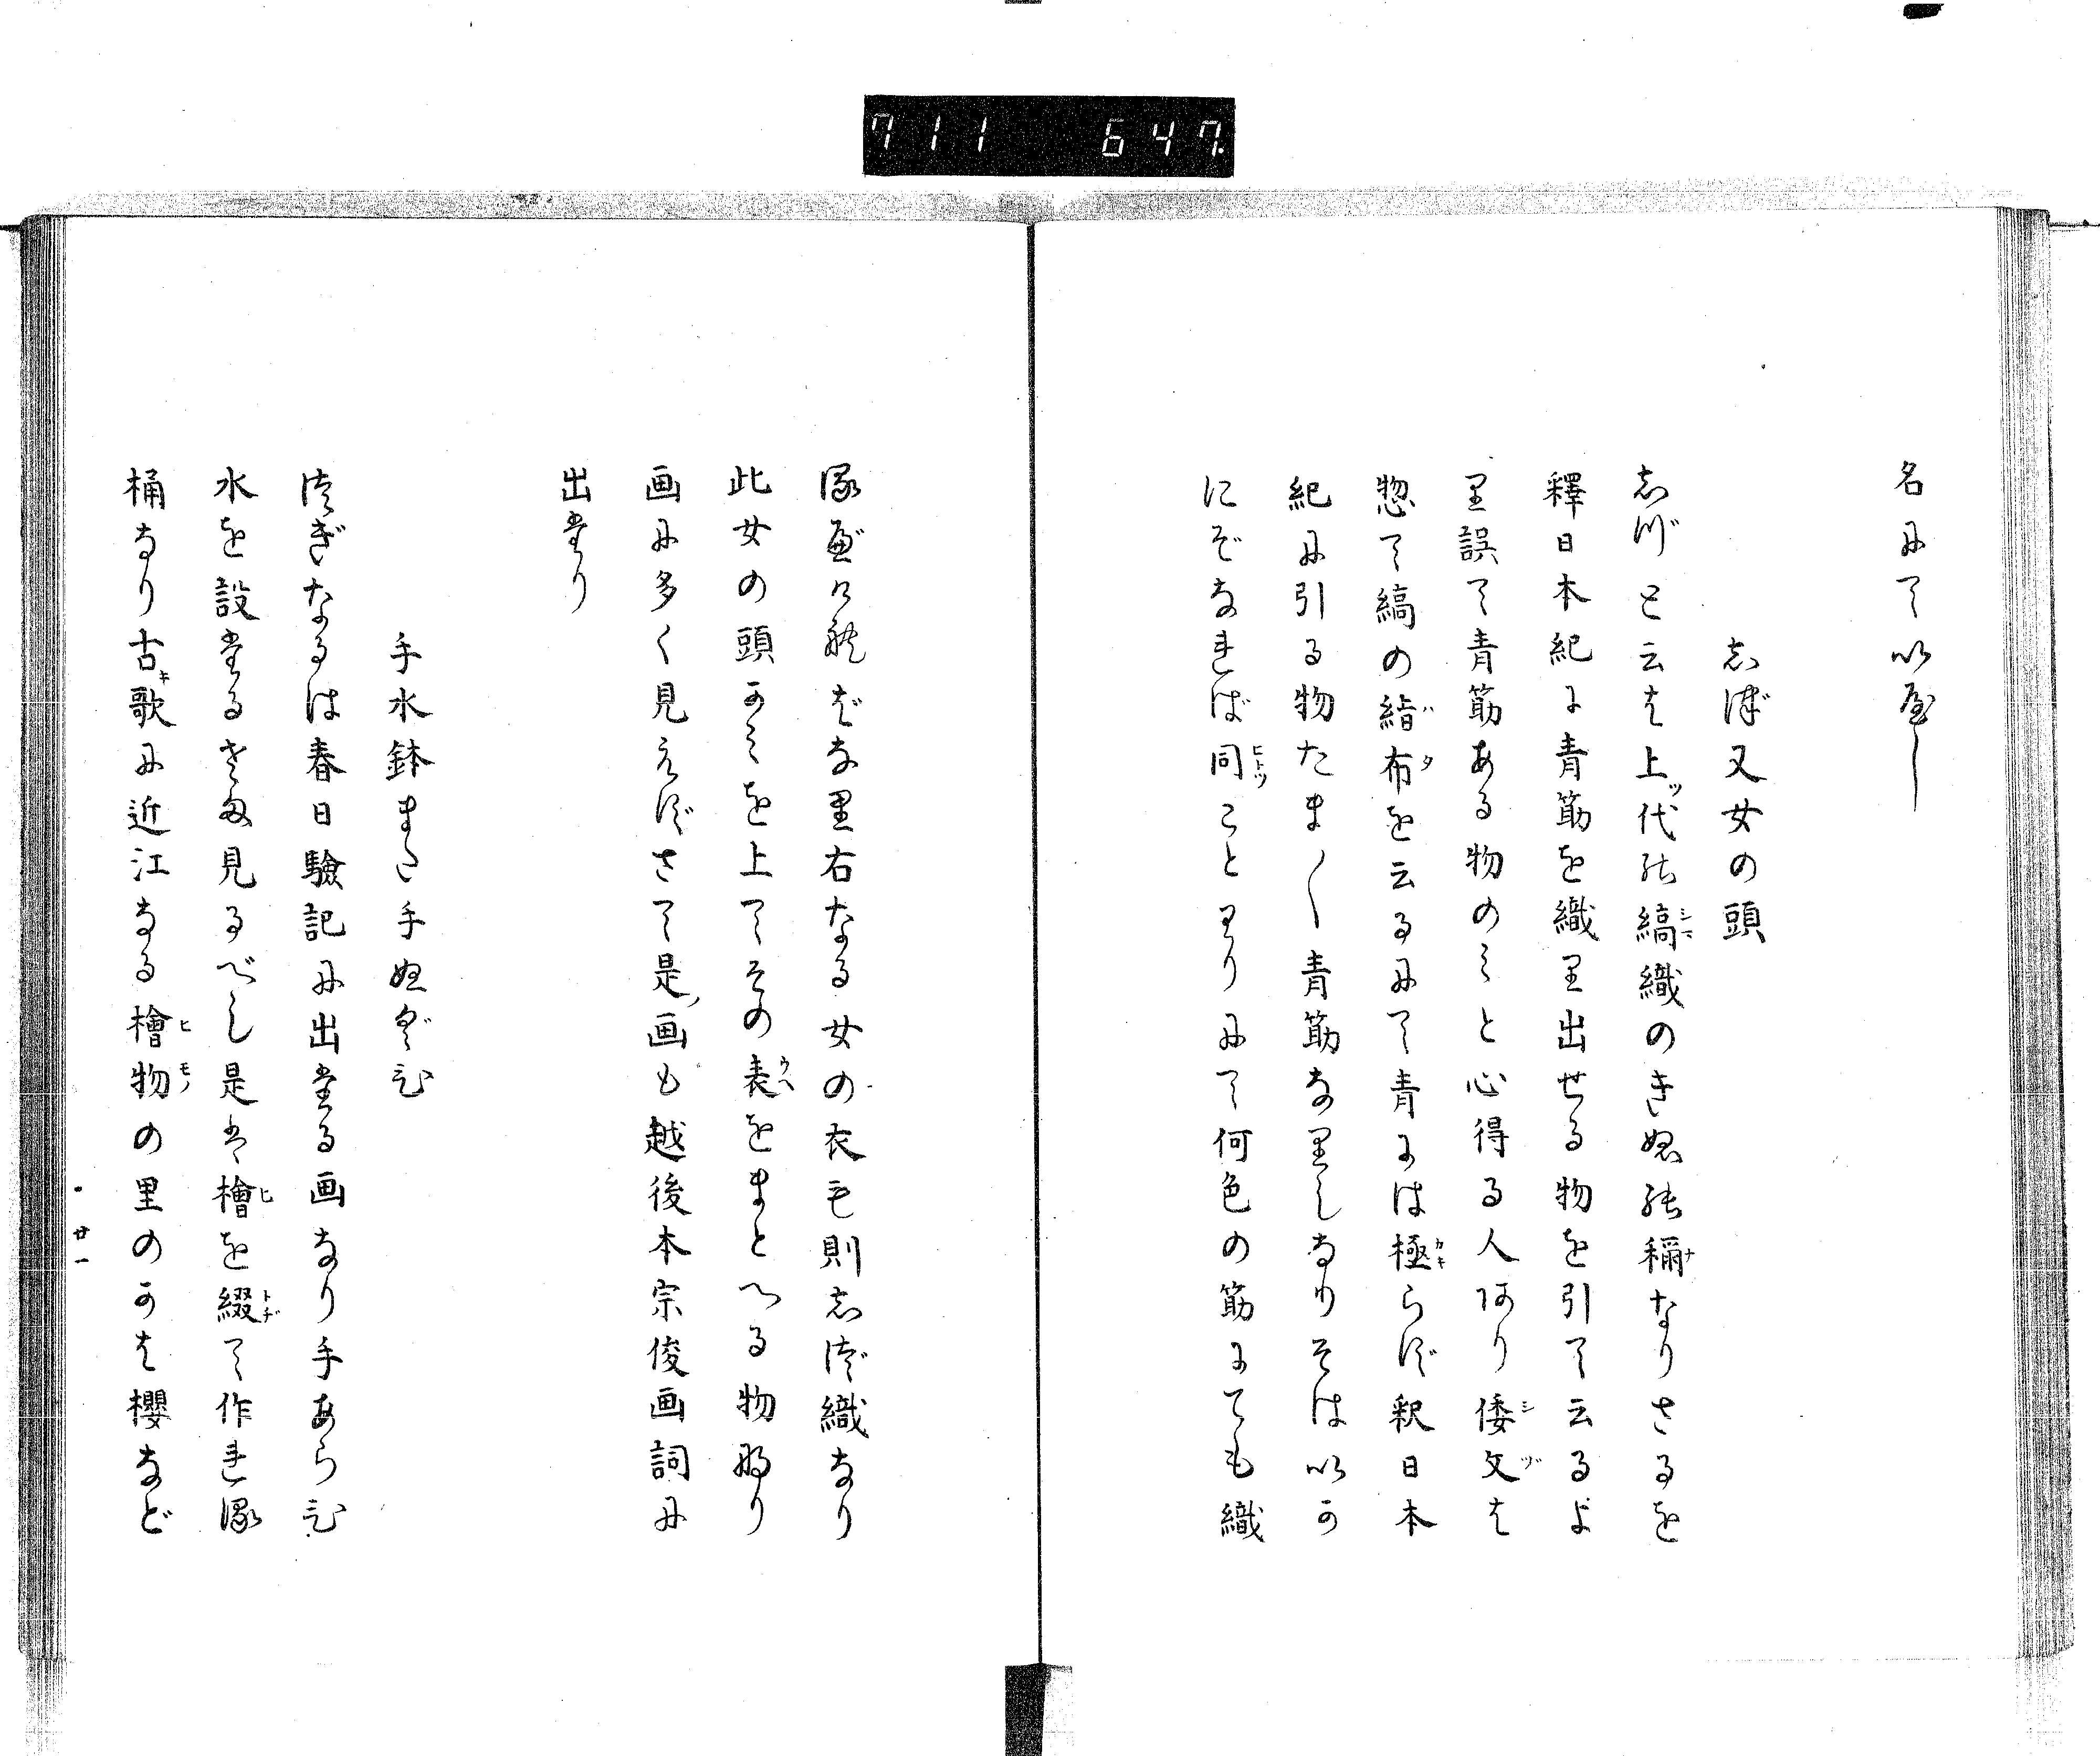 711 647.
名にていやし
志づ又女の頭
志づと云は上ッ代の縞織のきぬの稱なりさるを
釋日本紀に青筋を織り出せる物を引て云るよ
り誤て青筋ある物のみと心得る人あり倭文は
惣て縞の絹布を云るにて青には極らず釈日本
紀に引る物たま〱青筋なりしなりそはいか
にぞなれば同ことわりにて何色の筋にても織
なり右なる女の衣も則志づ織なり
此女の頭かみを上てその表をまとへる物なり
画に多く見えずさて是ノ画も越後本宗俊画詞に
出たり
手水鉢また手ぬぐひ
つぎなるは春日驗記に出たる画なり手あらひ
水を設たるさま見るべし是は檜を綴て作れる
桶なり古キ歌に近江なる檜物の里のかは櫻など
廿一